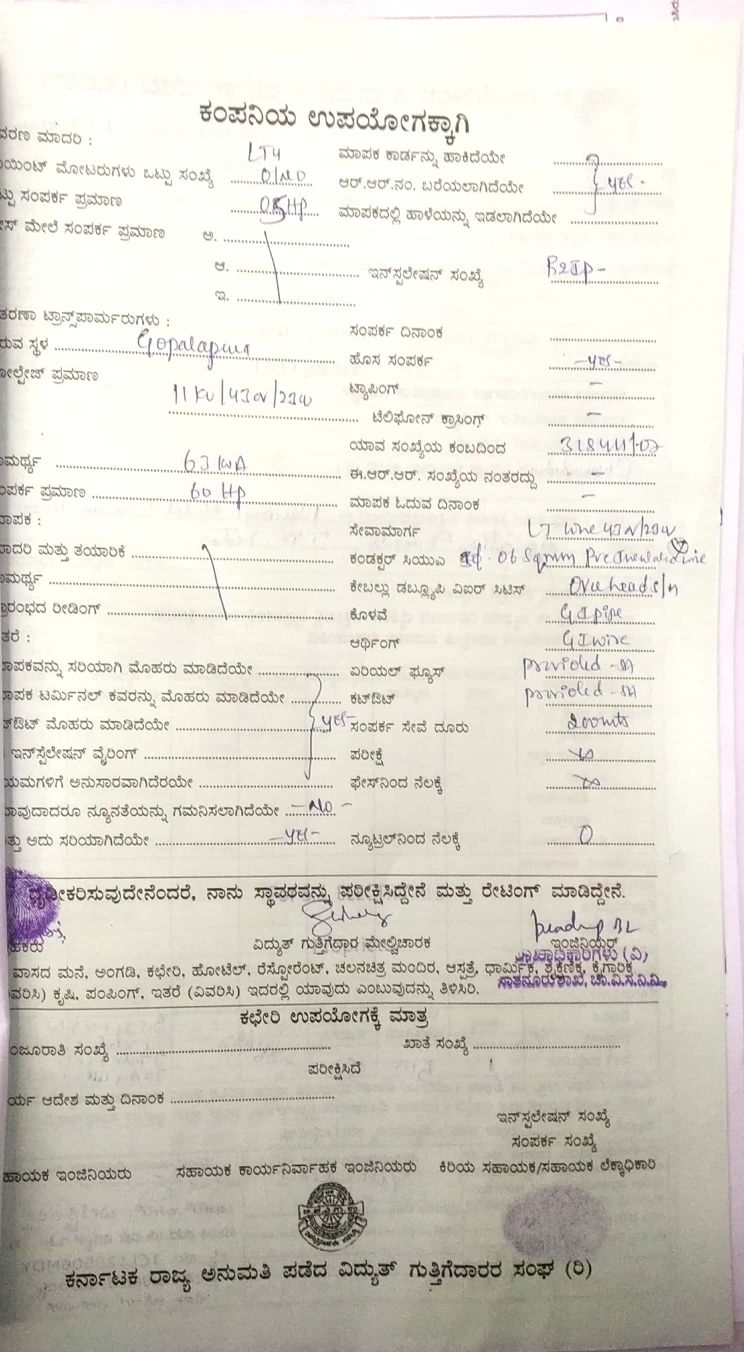 ಕಂಪನಿಯ ಉಪಯೋಗಕ್ಕಾಗಿ
ವರಣ ಮಾದರಿ : LT4 ಮಾಪಕ ಕಾರ್ಡನ್ನು ಹಾಕಿದೆಯೇ
ಯಿಂಟ್ ಮೋಟರುಗಳು ಒಟ್ಟು ಸಂಖ್ಯೆ 01NO ಆರ್.ಆರ್.ನಂ. ಬರೆಯಲಾಗಿದೆಯೇ yes-
ಟ್ಟು ಸಂಪರ್ಕ ಪ್ರಮಾಣ 05HP ಮಾಪಕದಲ್ಲಿ ಹಾಳೆಯನ್ನು ಇಡಲಾಗಿದೆಯೇ
ೇಸ್ ಮೇಲೆ ಸಂಪರ್ಕ ಪ್ರಮಾಣ ಅ.
ಆ. ಇನ್‌ಸ್ಟಲೇಷನ್ ಸಂಖ್ಯೆ
ಇ.
ತರಣಾ ಟ್ರಾನ್ಸ್‌ಪಾರ್ಮರುಗಳು : ಸಂಪರ್ಕ ದಿನಾಂಕ
ರುವ ಸ್ಥಳ Gopalapura ಹೊಸ ಸಂಪರ್ಕ -yes-
ೋಲ್ಟೇಜ್ ಪ್ರಮಾಣ ಟ್ಯಾಪಿಂಗ್ -
11KV/430V/230V ಟೆಲಿಫೋನ್ ಕ್ರಾಸಿಂಗ್ -
ಯಾವ ಸಂಖ್ಯೆಯ ಕಂಬದಿಂದ
ಾಮರ್ಥ್ಯ 63 KVA ಈ.ಆರ್.ಆರ್. ಸಂಖ್ಯೆಯ ನಂತರದ್ದು -
ಂಪರ್ಕ ಪ್ರಮಾಣ 60 HP ಮಾಪಕ ಓದುವ ದಿನಾಂಕ -
ಾಪಕ : ಸೇವಾಮಾರ್ಗ LT line 430V/230V
ಾದರಿ ಮತ್ತು ತಯಾರಿಕೆ ಕಂಡಕ್ಟರ್ ಸಿಯುಎ 06 Sqmm
ಾಮರ್ಥ್ಯ ಕೇಬಲ್ಲು ಡಬ್ಲ್ಯೂಪಿ ವಿಐರ್ ಸಿಟಿಸ್ Overhead s/n
್ರಾರಂಭದ ರೀಡಿಂಗ್ ಕೊಳವೆ GI pipe
ತರೆ : ಅರ್ಥಿಂಗ್ GI wire
ಾಪಕವನ್ನು ಸರಿಯಾಗಿ ಮೊಹರು ಮಾಡಿದೆಯೇ ಏರಿಯಲ್ ಫ್ಯೂಸ್ provided
ಾಪಕ ಟರ್ಮಿನಲ್ ಕವರನ್ನು ಮೊಹರು ಮಾಡಿದೆಯೇ ಕಟ್‌ಔಟ್ provided
ಟ್‌ಔಟ್ ಮೊಹರು ಮಾಡಿದೆಯೇ yes- ಸಂಪರ್ಕ ಸೇವೆ ದೂರು 200mts
ಇನ್‌ಸ್ಟೆಲೇಷನ್ ವೈರಿಂಗ್ ಪರೀಕ್ಷೆ ∞
ಯಮಗಳಿಗೆ ಅನುಸಾರವಾಗಿದೆರಯೇ ಫೇಸ್‌ನಿಂದ ನೆಲಕ್ಕೆ ∞
ಾವುದಾದರೂ ನ್ಯೂನತೆಯನ್ನು ಗಮನಿಸಲಾಗಿದೆಯೇ -NO-
ತ್ತು ಅದು ಸರಿಯಾಗಿದೆಯೇ -yes- ನ್ಯೂಟ್ರಲ್‌ನಿಂದ ನೆಲಕ್ಕೆ 0
ಧೃಢೀಕರಿಸುವುದೇನೆಂದರೆ, ನಾನು ಸ್ಥಾವರವನ್ನು ಪರೀಕ್ಷಿಸಿದ್ದೇನೆ ಮತ್ತು ರೇಟಿಂಗ್ ಮಾಡಿದ್ದೇನೆ.
ಹಕರು ವಿದ್ಯುತ್ ಗುತ್ತಿಗೆದಾರ ಮೇಲ್ವಿಚಾರಕ ಇಂಜಿನಿಯರ್
ಶಾಖಾಧಿಕಾರಿಗಳು (ವಿ)
ವಾಸದ ಮನೆ, ಅಂಗಡಿ, ಕಛೇರಿ, ಹೋಟೆಲ್, ರೆಸ್ಟೋರೆಂಟ್, ಚಲನಚಿತ್ರ ಮಂದಿರ, ಆಸ್ಪತ್ರೆ, ಧಾರ್ಮಿಕ, ಶೈಕ್ಷಣಿಕ, ಕೈಗಾರಿಕ
ವರಿಸಿ) ಕೃಷಿ, ಪಂಪಿಂಗ್, ಇತರೆ (ವಿವರಿಸಿ) ಇದರಲ್ಲಿ ಯಾವುದು ಎಂಬುವುದನ್ನು ತಿಳಿಸಿರಿ. ಸಾತನೂರು ಶಾಖೆ, ಚಾ.ವಿ.ಸ.ನಿ.ನಿ.,
ಕಛೇರಿ ಉಪಯೋಗಕ್ಕೆ ಮಾತ್ರ
ಂಜೂರಾತಿ ಸಂಖ್ಯೆ ಖಾತೆ ಸಂಖ್ಯೆ
ಪರೀಕ್ಷಿಸಿದೆ
ರ್ಯ ಆದೇಶ ಮತ್ತು ದಿನಾಂಕ
ಇನ್‌ಸ್ಟಲೇಷನ್ ಸಂಖ್ಯೆ
ಸಂಪರ್ಕ ಸಂಖ್ಯೆ
ಹಾಯಕ ಇಂಜಿನಿಯರು ಸಹಾಯಕ ಕಾರ್ಯನಿರ್ವಾಹಕ ಇಂಜಿನಿಯರು ಕಿರಿಯ ಸಹಾಯಕ/ಸಹಾಯಕ ಲೆಕ್ಕಾಧಿಕಾರಿ
ಕರ್ನಾಟಕ ರಾಜ್ಯ ಅನುಮತಿ ಪಡೆದ ವಿದ್ಯುತ್ ಗುತ್ತಿಗೆದಾರರ ಸಂಘ (ರಿ)